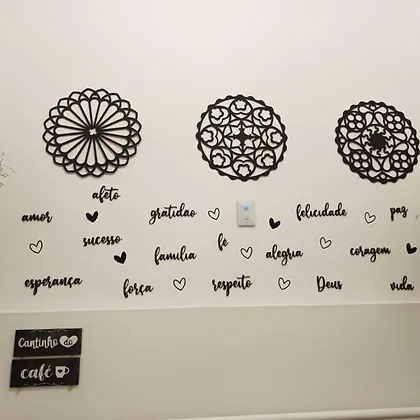 afeto
amor gratidao felicidade paz
sucesso fé
familia alegria coragem
esperança força respeito Deus vida
Cantinho do
café